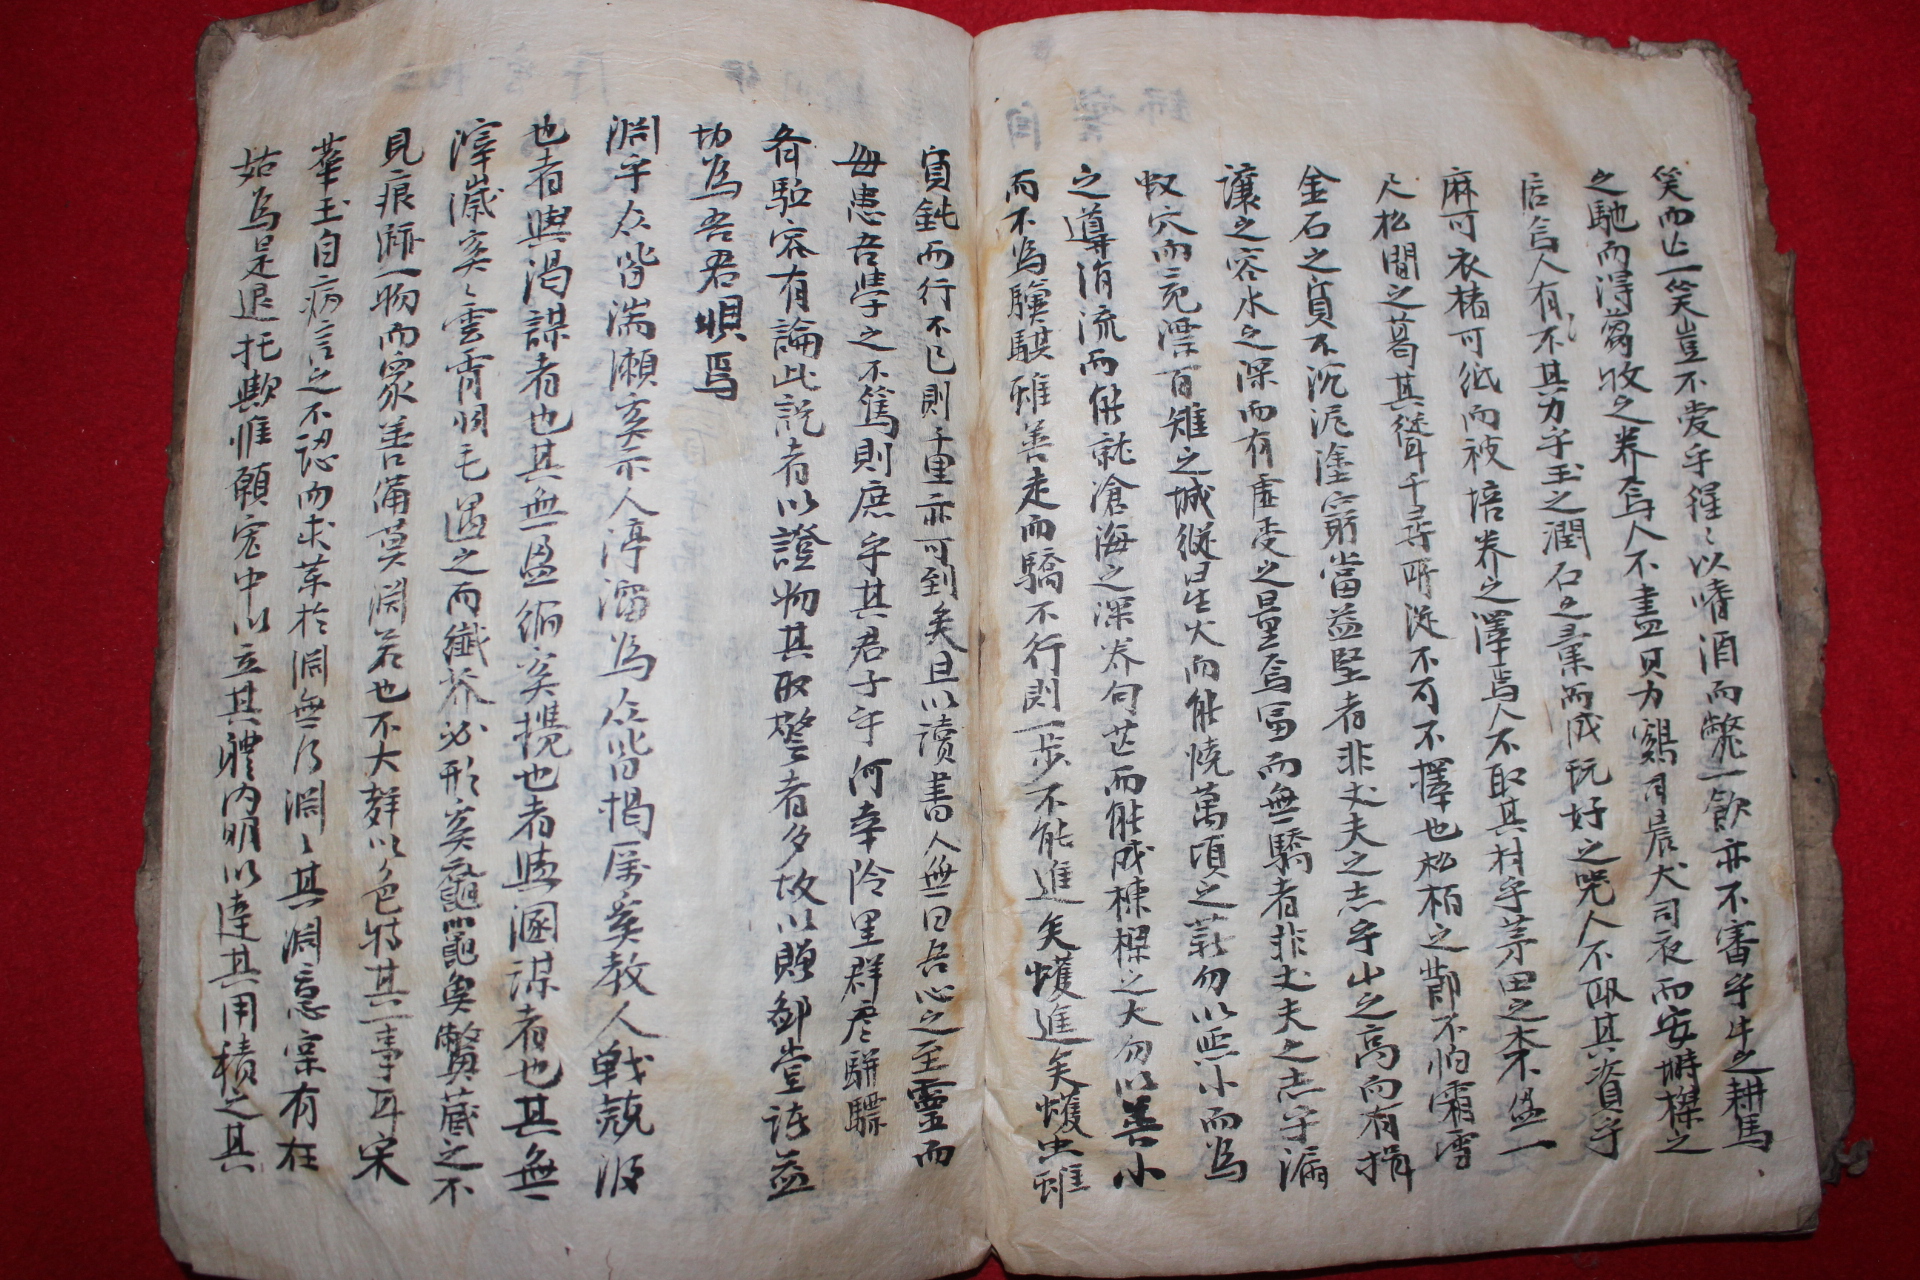 笑而止一笑豈不愛乎猩〻以嗜酒而斃一飮亦不審乎牛之耕馬
之馳而得芻牧之养焉人不盡貝力鷄司晨犬司夜而安塒榤之
居焉人有不其力乎玉之潤石之素而成玩好之宠人不取其資乎
麻可衣楮可紙而被培养之澤焉人不取其材乎芽田之木不盈一
尺松間之葛其縱千尋所從不可不擇也松栢之節不怕霜雪
金石之質不沉泥塗窮當益堅者非丈夫之志乎山之高而有揖
讓之容水之深而有虛受之量焉富而無驕者非丈夫之志乎漏
蚁穴而完漂百雉之城縱星火而能燒萬頃之薪勿以惡小而為
之導涓流而能就滄海之深养句芒而能成棟樑之大勿以善小
而不為驥騏雖善走而驕不行則一步不能進矣蠖進矣蠖虫雖
質鈍而行不已則千里亦可到矣且以讀書人無曰吾心之至靈而
毋患吾學之不篤則庶乎其君子乎何幸隂里群君騈驃
各駐容有論此說者以證物其取警者多故以贈鄉堂該益
切為吾君唄焉
淵乎众皆湍瀨奚示人渟滀為众皆揭厲奚教人戰兢汲
也者與渴謀者也其無一盈縮奚攪也者與溷謀者也其無一
滓濊奚〻雲霄明毛過之而纖芥必形奚龜黿奧贔蔵之不
見痕漸一物而眾善備莫淵若也不大群以〻色特其一事耳宋
華玉自病言之不訒而求革於淵無乃淵〻其淵意寀有在
姑為是退托歟惟願宏中以立其體內明以達其用積之其